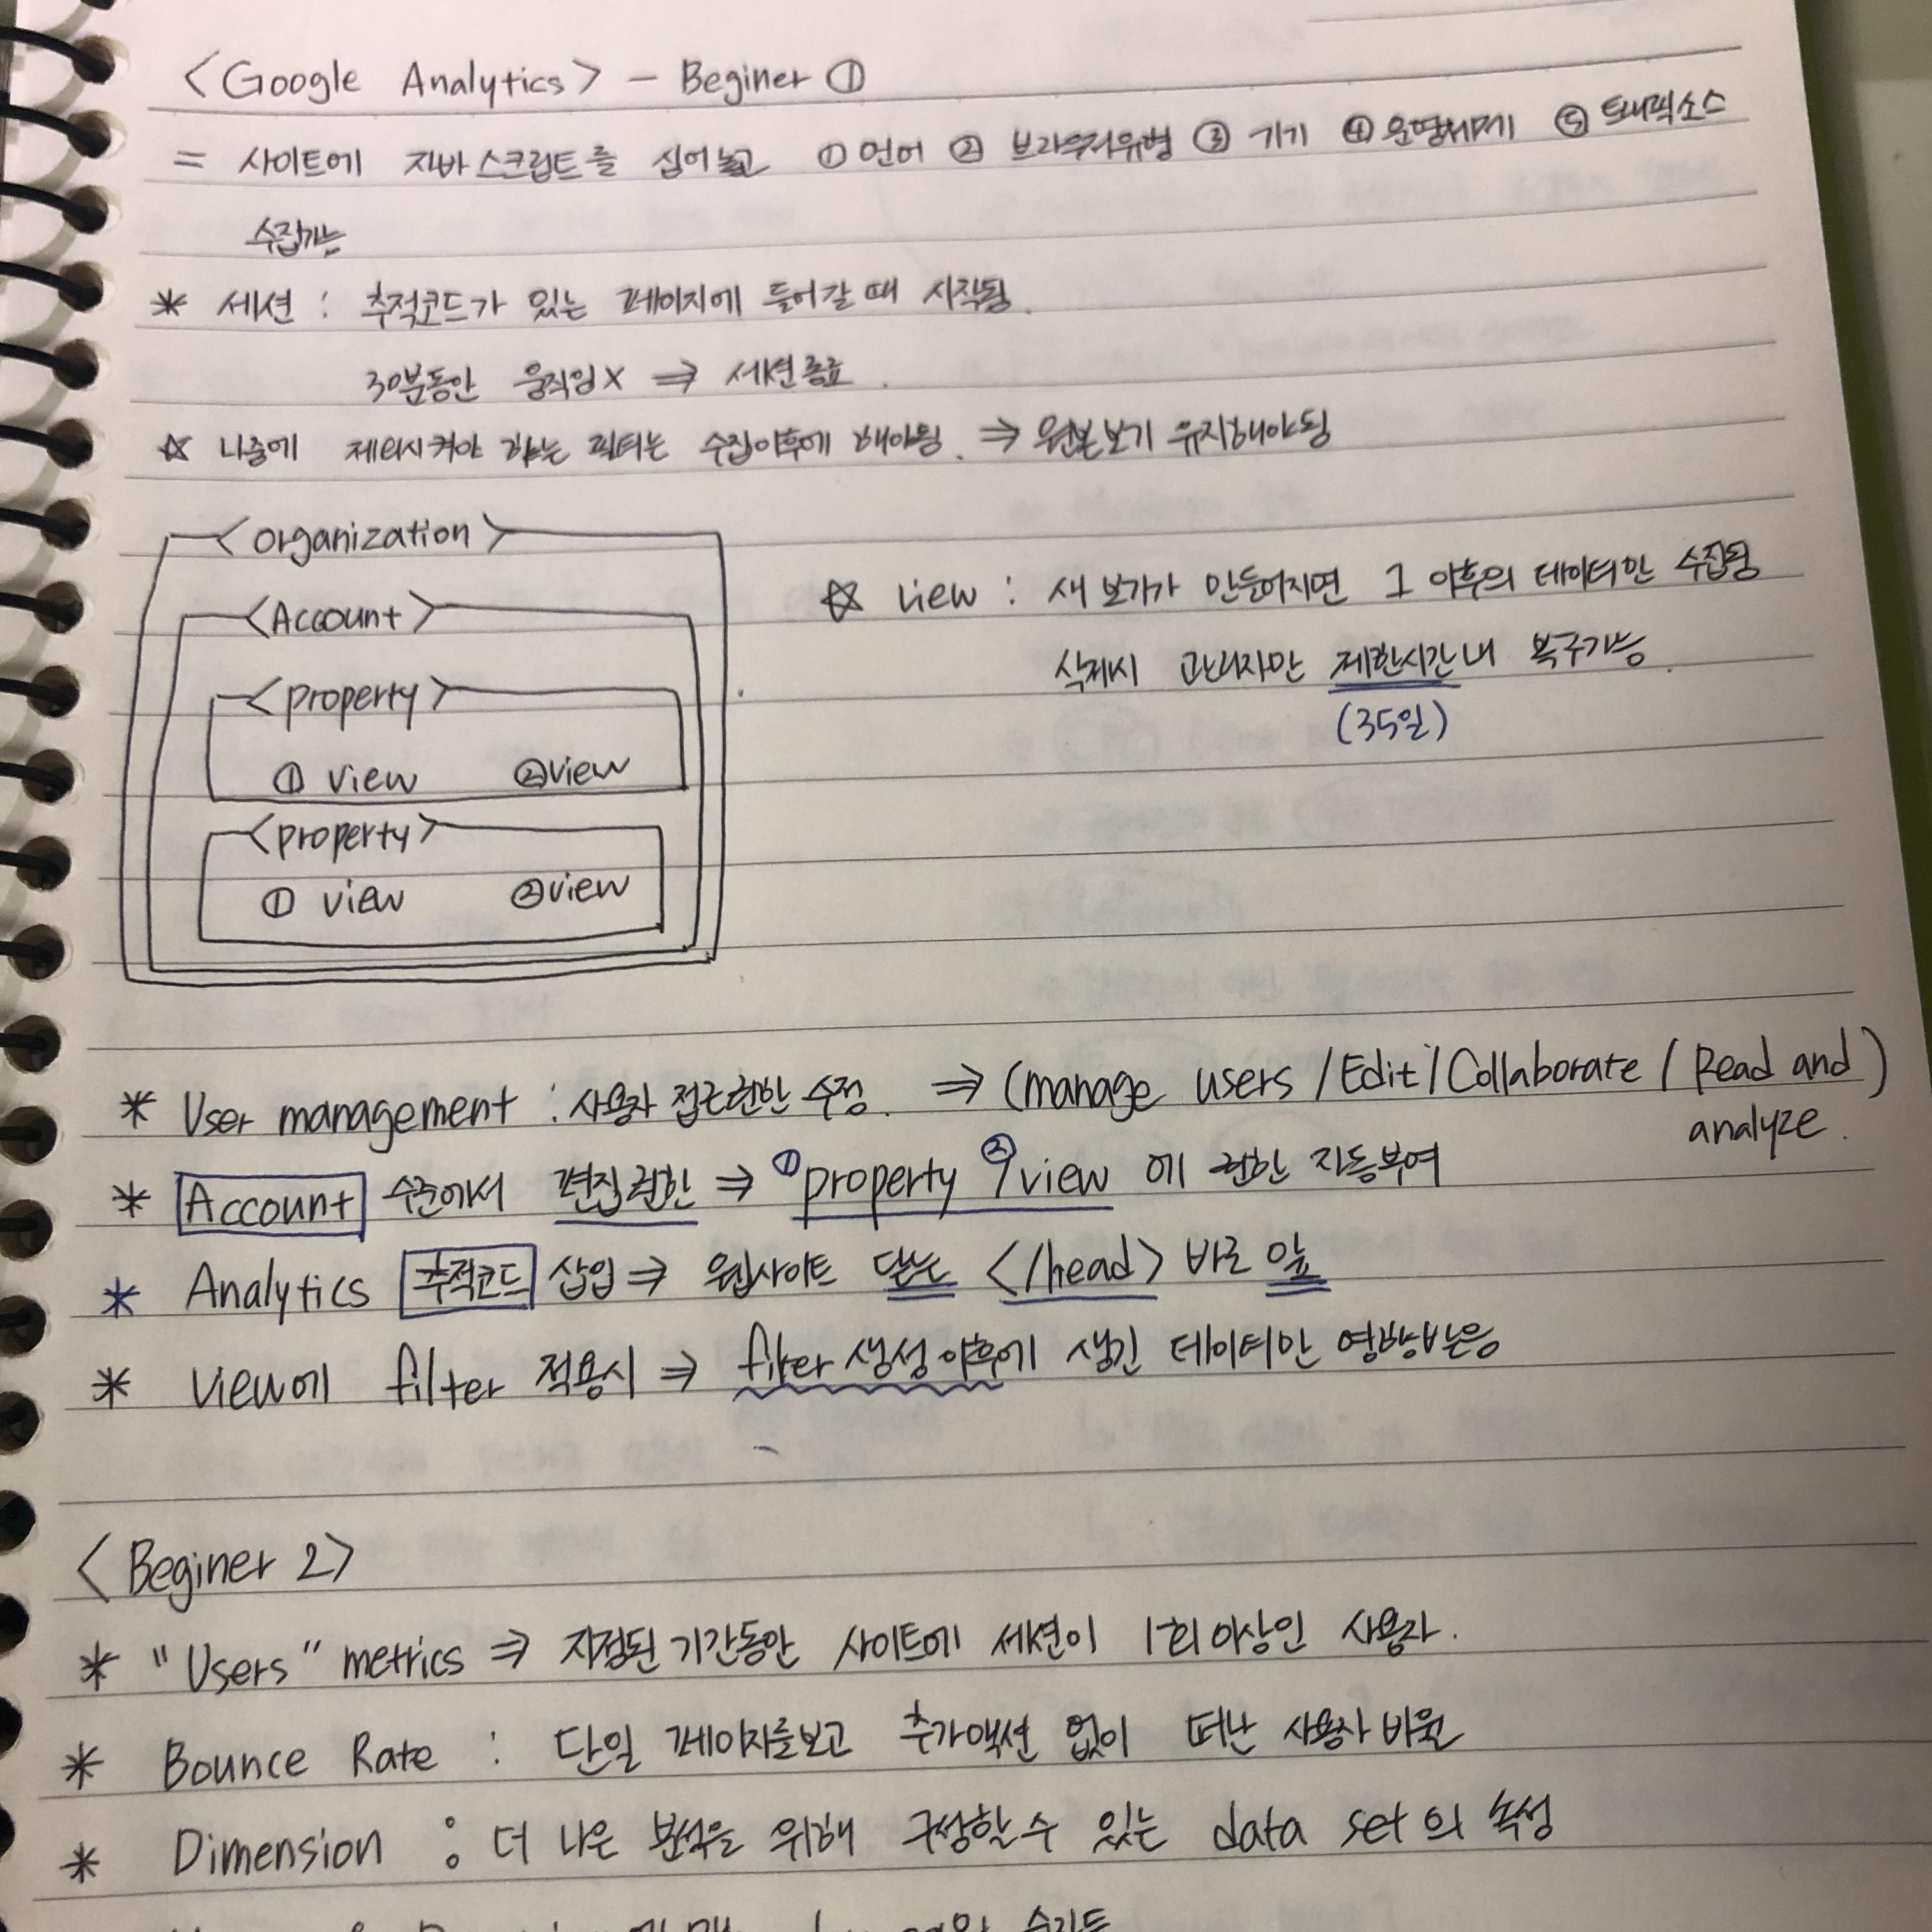 <Google Analytics> - Beginer ①
= 사이트에 자바스크립트를 심어놓고 ①언어 ② 브라우저유형 ③ 기기 ④운영체제 ⑤ 트래픽소스
수집가능
* 세션 : 추적코드가 있는 페이지에 들어갈 때 시작됨.
30분동안 움직임X ⇒ 세션종료.
☆ 나중에 제외시켜야 하는 필터는 수집이후에 해야됨. ⇒ 원본보기 유지해야됨
<organization>
<Account>
<property>
① view ②view
<property>
① view ②view
☆ view : 새 보기가 만들어지면 그 이후의 데이터만 수집됨
삭제시 관리자만 제한시간내 복구가능.
(35일)
* User management : 사용자 접근권한 수정. ⇒ (manage users / Edit / Collaborate / Read and)
analyze.
* Account 수준에서 편집권한 ⇒ ①property ②view 에 권한 자동부여
* Analytics 추적코드 삽입 ⇒ 웹사이트 닫는 </head> 바로 앞
* view에 filter 적용시 ⇒ filter 생성이후에 생긴 데이터만 영향받음
<Beginer 2>
* "Users" metrics ⇒ 지정된 기간동안 사이트에 세션이 1회 이상인 사용자.
* Bounce Rate : 단일 페이지를보고 추가액션 없이 떠난 사용자 비율
* Dimension : 더 나은 분석을 위해 구성할수 있는 data set의 속성